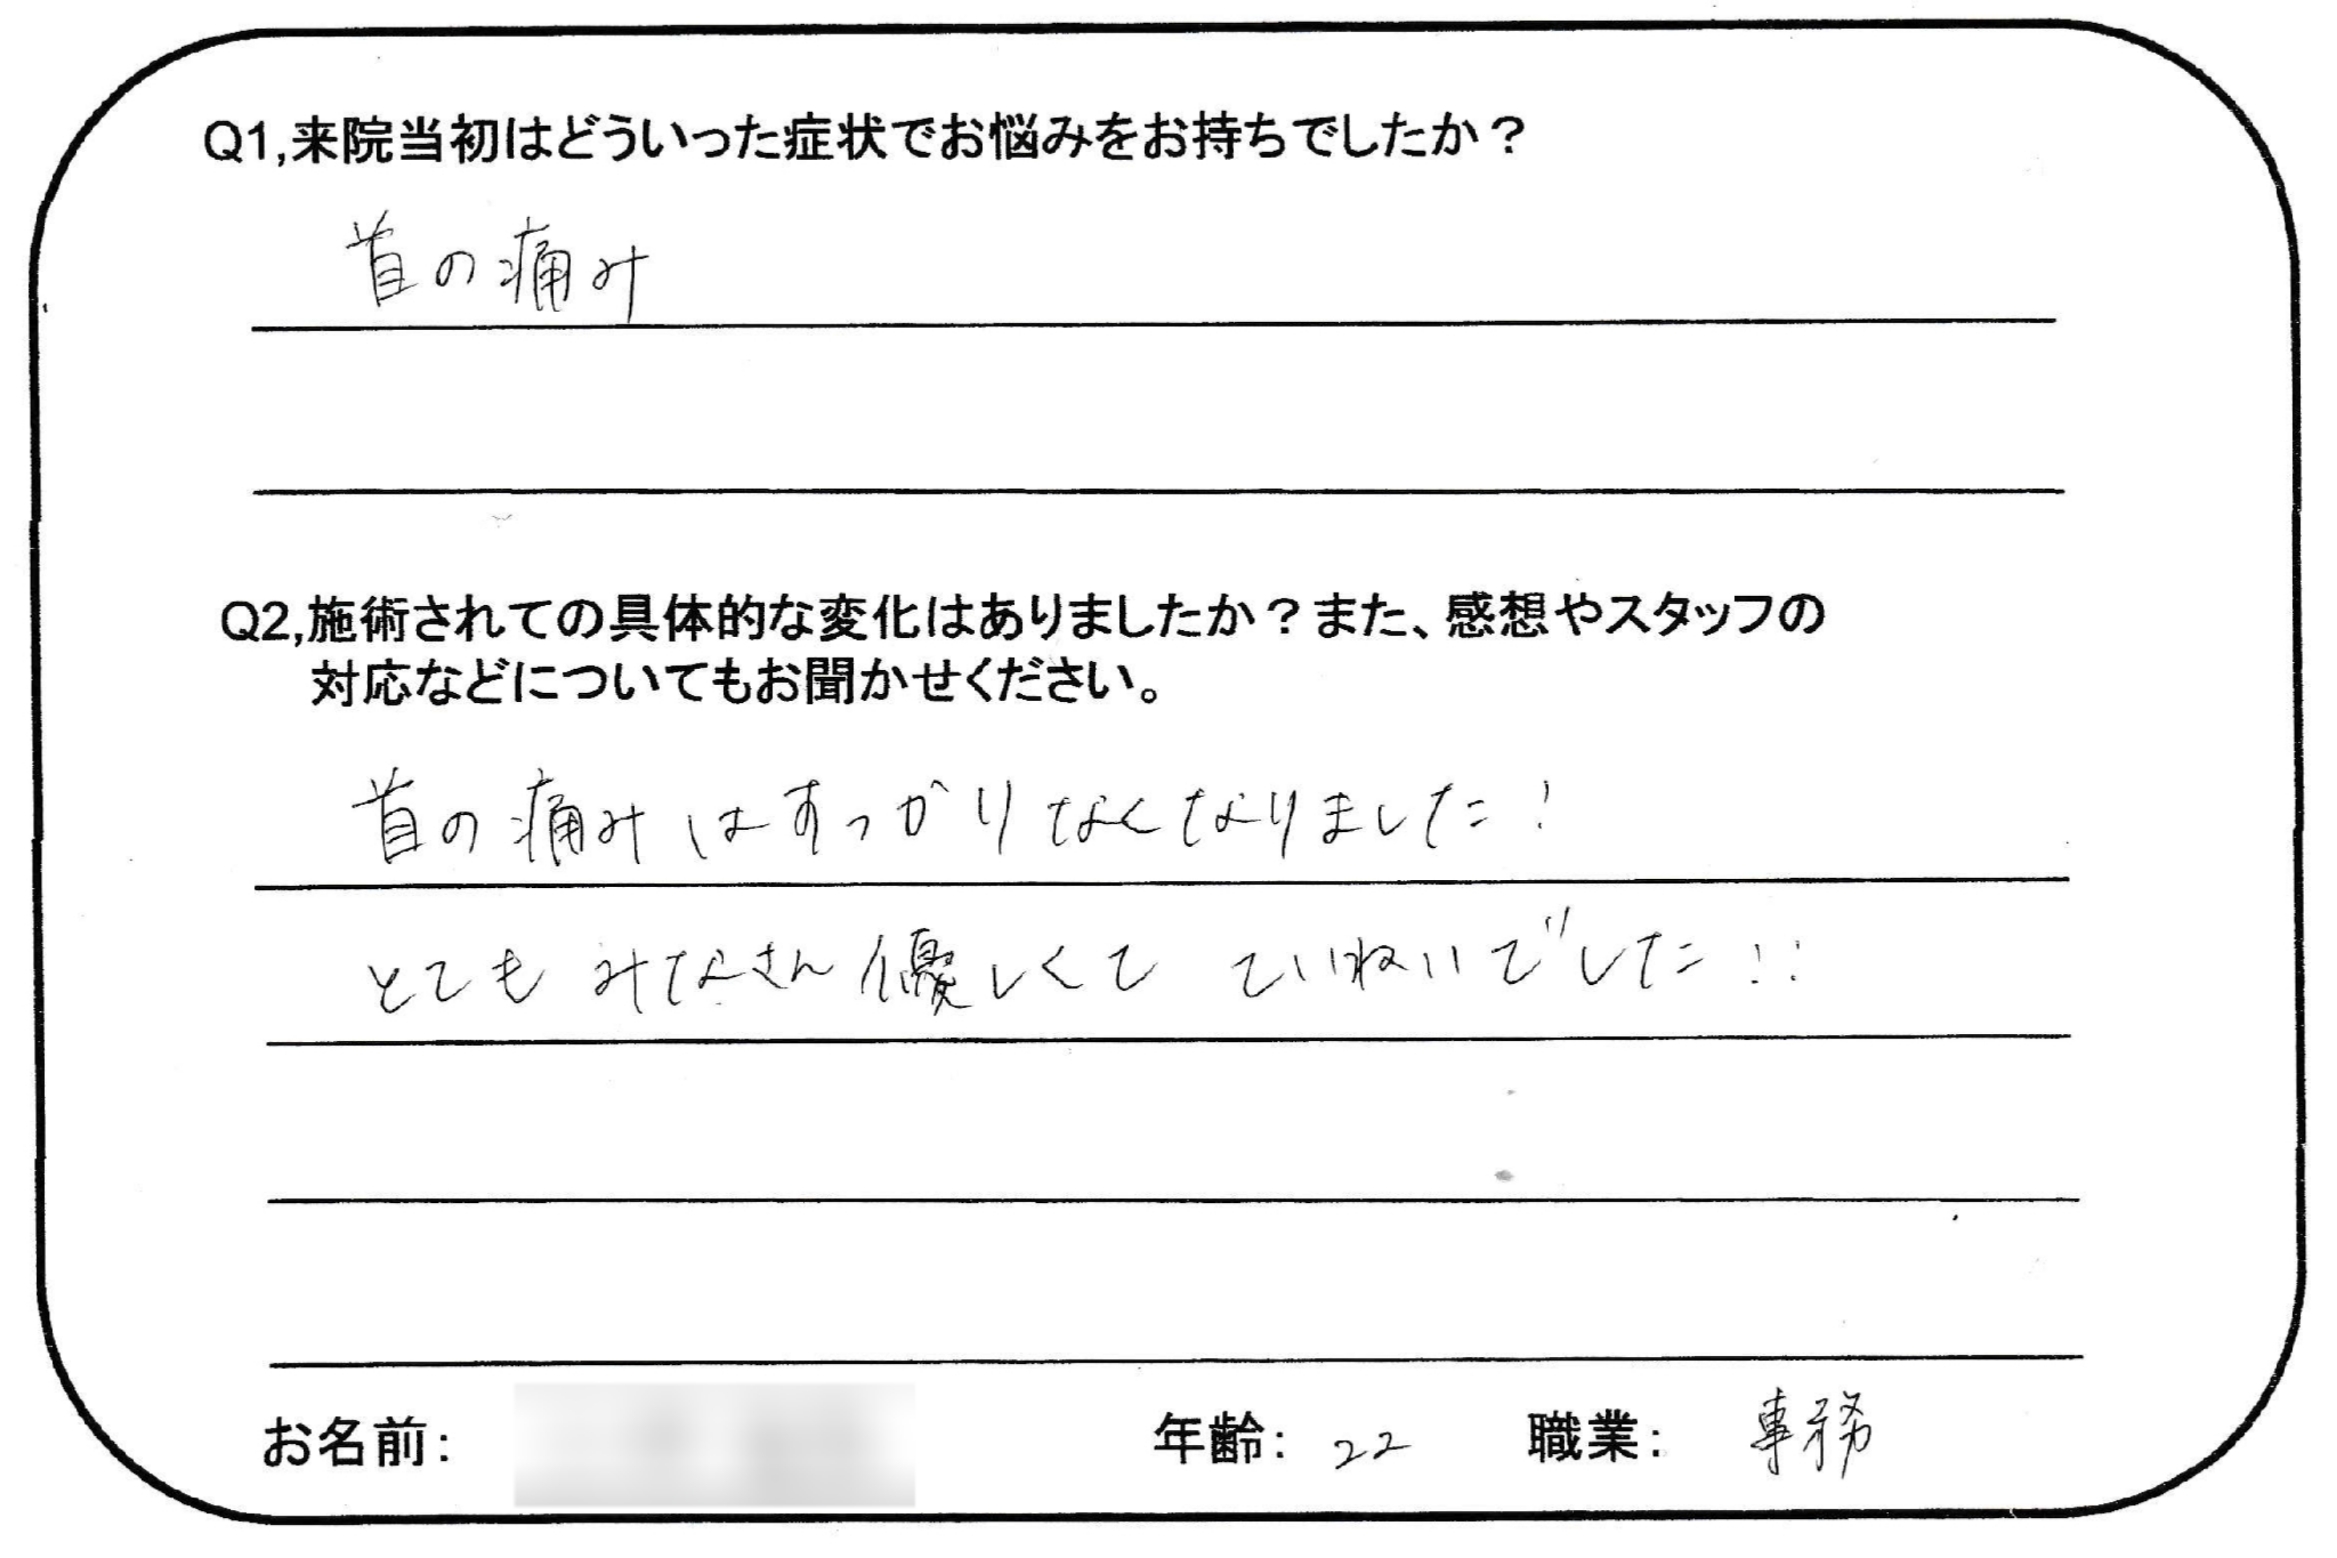 Q1,来院当初はどういった症状でお悩みをお持ちでしたか？
首の痛み
Q2,施術されての具体的な変化はありましたか？また、感想やスタッフの
対応などについてもお聞かせください。
首の痛みはすっかりなくなりました！
とてもみなさん優しくて ていねいでした！！
お名前: 年齢: 22 職業: 事務